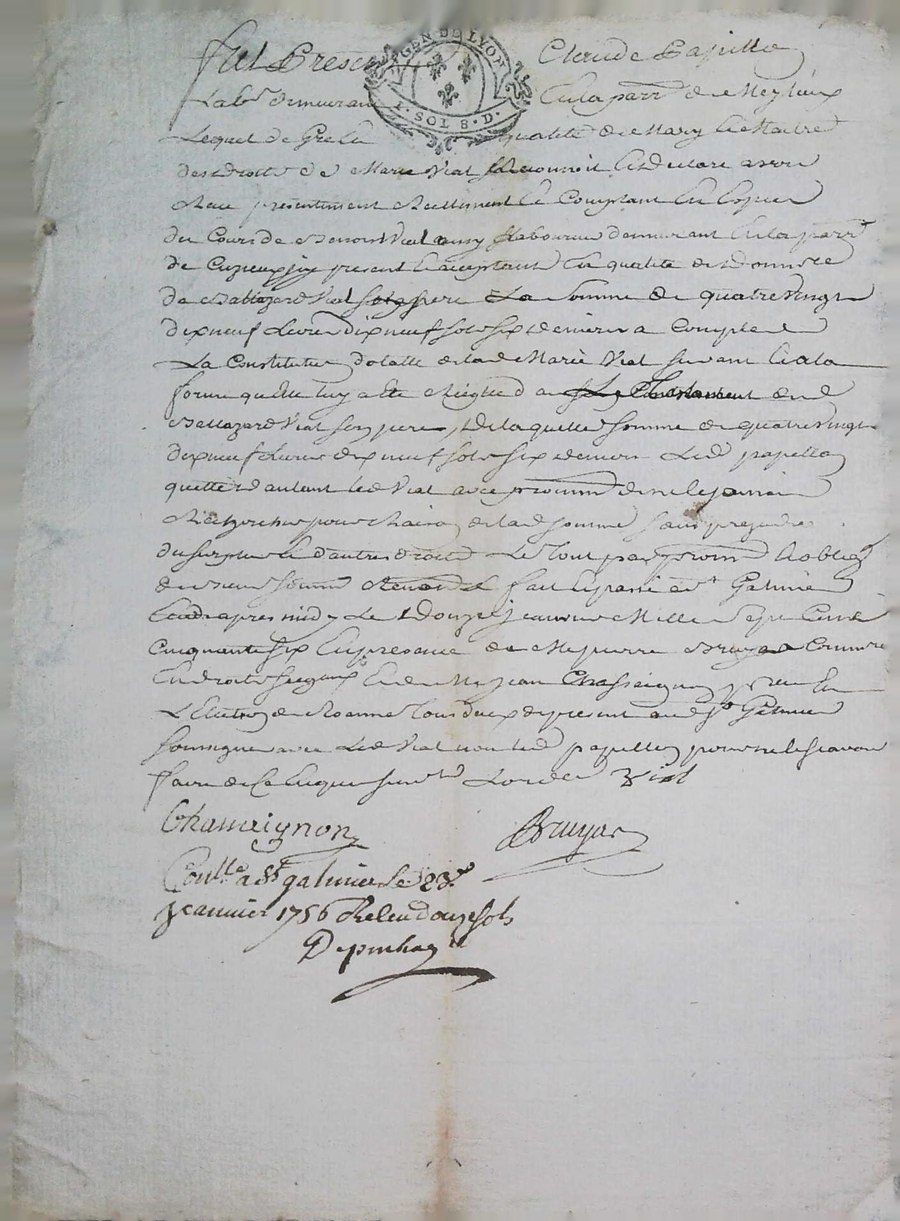 fut Present Claude Papillo
Lab.r demeurant en la parr de Meylieux
Lequel de Gré en qualité de Mary et Maitre
des droits de Marie Vial reconnoit et declare avoir
Receu presentement Reellement et Comptant en Espece
du Cours de Benoit Vial aussy Laboureur demeurant en la parr
de Cuzieux icy present et acceptant en qualité de donn
de Baltazard Vial son pere La Somme de quatrevingt
dix neuf Livres dix neuf sols six deniers a Compte de
La Constitution dotalle de lad Marie Vial suivant et a la
forme quelle luy a eté Reglée d
Baltazard Vial son pere, de laquelle Somme de quatrevingt
dix neuf Livres dix neuf sols six deniers Led papillo
quitte d'autant led Vial avec promm de ne le jamais
Rechercher pour Raison de lad somme sans prejudice
du surplus et d'autres droits Le tout par promm et oblig
fait et passé a St Galmier
Etude apres midy Le Douze janvier Mille Sept Cent
Cinquante six En presence de Me pierre Bruyas
En droits et de Me jean Chasseignon En
L'Election de Roanne Tous deux de present aud St Galmier
Soussigné avec Led Vial non led papillo pour ne le scavoir
faire de Ce Enquis Vial
Chasseignon Bruyas
Conlle a St galmier le 23e
janvier 1756 Receu douze sols
Depinhac
GEN DE LYON
1 · SOL 8 · D ·